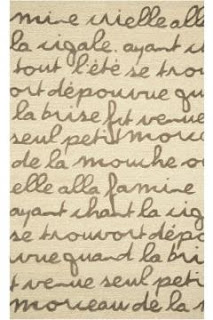 mine crielle alla
la cigale. ayant ch
tout l'été se trouv
ort dépourvue qu
la brise fut venue
seul petit morce
de la mouche ou
elle alla famine
ayant chant la cig
se trouvort dépo
vue quand la bri
t venue seul peti
morceau de la